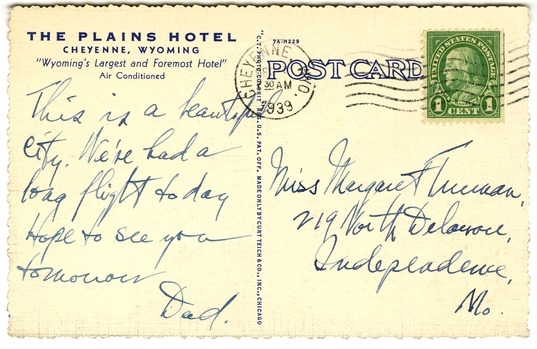 THE PLAINS HOTEL
CHEYENNE, WYOMING
"Wyoming's Largest and Foremost Hotel"
Air Conditioned
This is a beautiful
city. We've had a
long flight today
Hope to see you
tomorrow
Dad.
7A-H229
"C.T. PHOTO COLORIT" REG. U.S. PAT. OFF. MADE ONLY BY CURT TEICH & CO., INC., CHICAGO
POST CARD
CHEYENNE
30 AM
1939
WYO.
UNITED STATES POSTAGE
1 CENT 1
Miss Margaret Truman,
219 North Delaware,
Independence,
Mo.